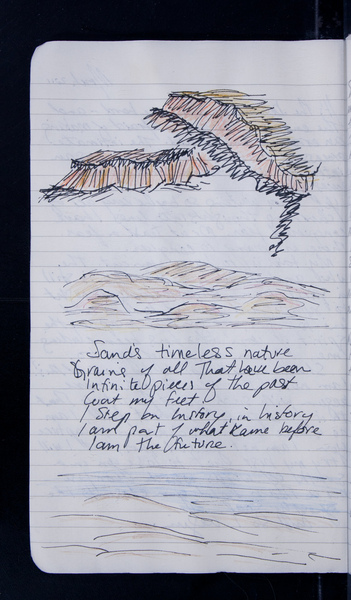 Sand's timeless nature
Grains of all That have been
Infinite pieces of the past
Coat my feet
I Step on history, in history
I am part of what Kame before
I am The future.